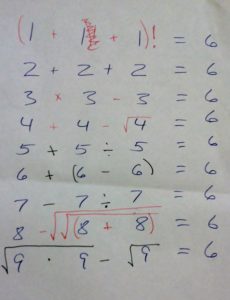 (1 + 1 + 1)! = 6
2 + 2 + 2 = 6
3 × 3 - 3 = 6
4 + 4 - √4 = 6
5 + 5 ÷ 5 = 6
6 + (6 - 6) = 6
7 - 7 ÷ 7 = 6
8 - √√(8 + 8) = 6
√9 · 9 - √9 = 6